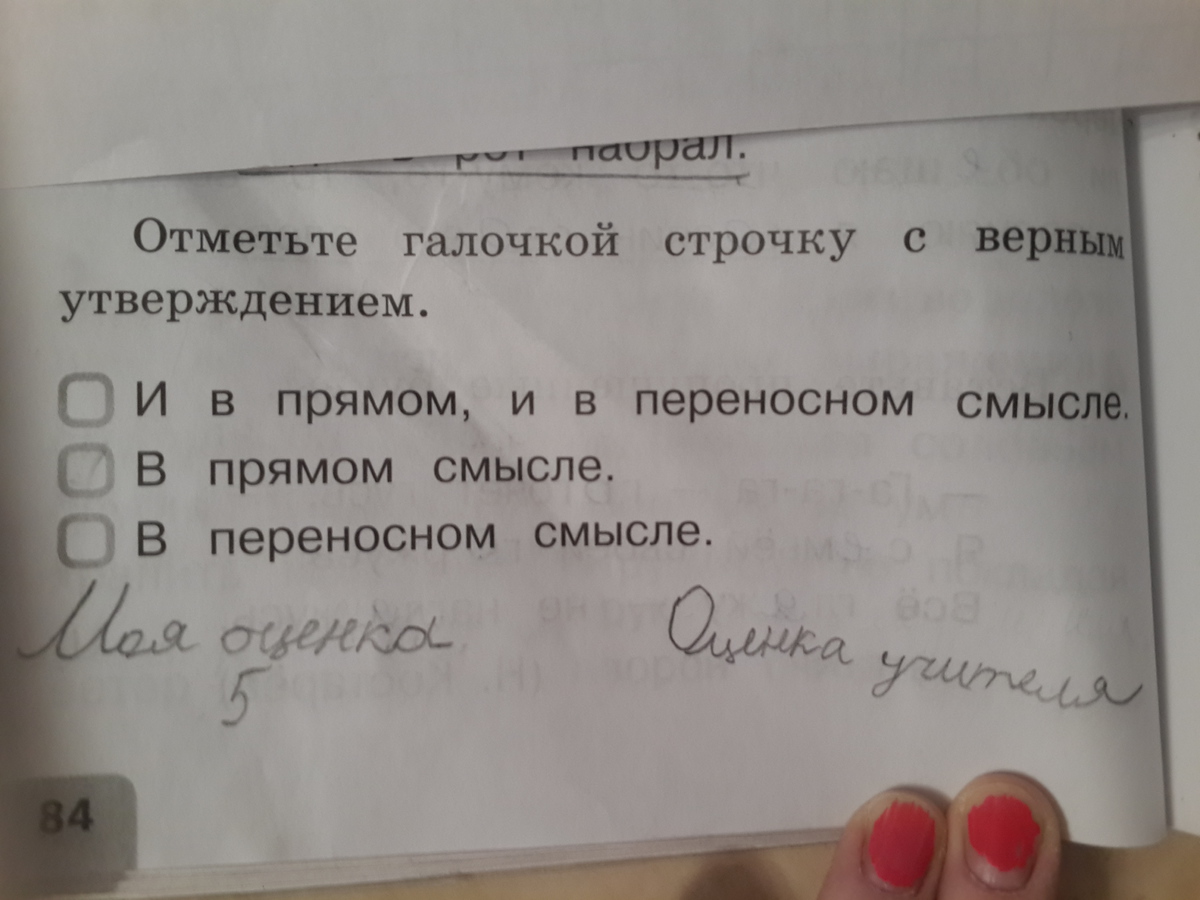 в рот набрал.
Отметьте галочкой строчку с верным
утверждением.
И в прямом, и в переносном смысле.
В прямом смысле.
В переносном смысле.
Моя оценка Оценка учителя
5
84